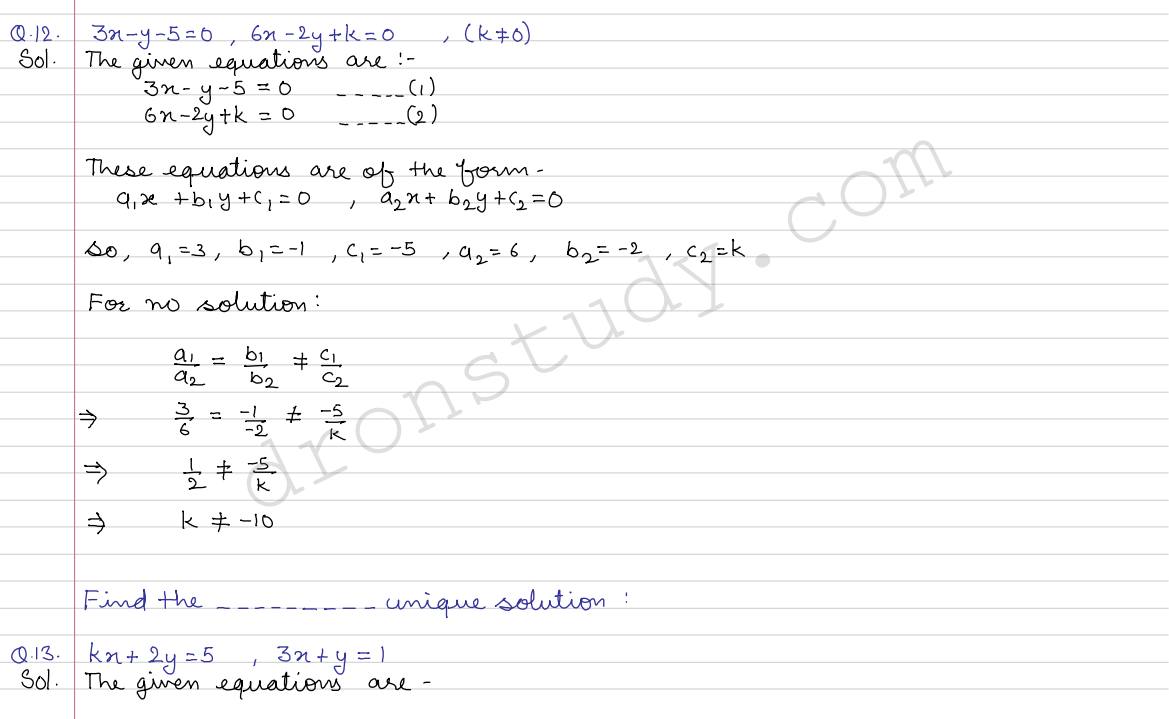 Q.12. 3x-y-5=0 , 6x-2y+k=0 , (k≠0)
Sol. The given equations are :-
3x-y-5=0 -----(1)
6x-2y+k=0 -----(2)
These equations are of the form-
a₁x+b₁y+c₁=0 , a₂x+b₂y+c₂=0
So, a₁=3, b₁=-1 , c₁=-5 , a₂=6, b₂=-2 , c₂=k
For no solution:
a₁/a₂ = b₁/b₂ ≠ c₁/c₂
⇒ 3/6 = -1/-2 ≠ -5/k
⇒ 1/2 ≠ -5/k
⇒ k ≠ -10
Find the --------- unique solution :
Q.13. kx+2y=5 , 3x+y=1
Sol. The given equations are -
dronstudy.com